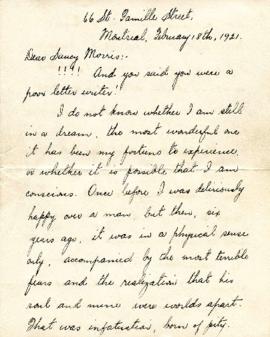 66 St. Famille Street,
Montreal, February 18th, 1921.
Dear Saucy Morris:-
!!!! And you said you were a
poor letter writer!!
I do not know whether I am still
in a dream, the most wonderful one
it has been my fortune to experience,
or whether it is possible that I am
conscious. Once before I was deliriously
happy over a man, but then, six
years ago, it was in a physical sense
only, accompanied by the most terrible
fears and the realization that his
soul and mine were worlds apart.
That was infatuation, born of pity.